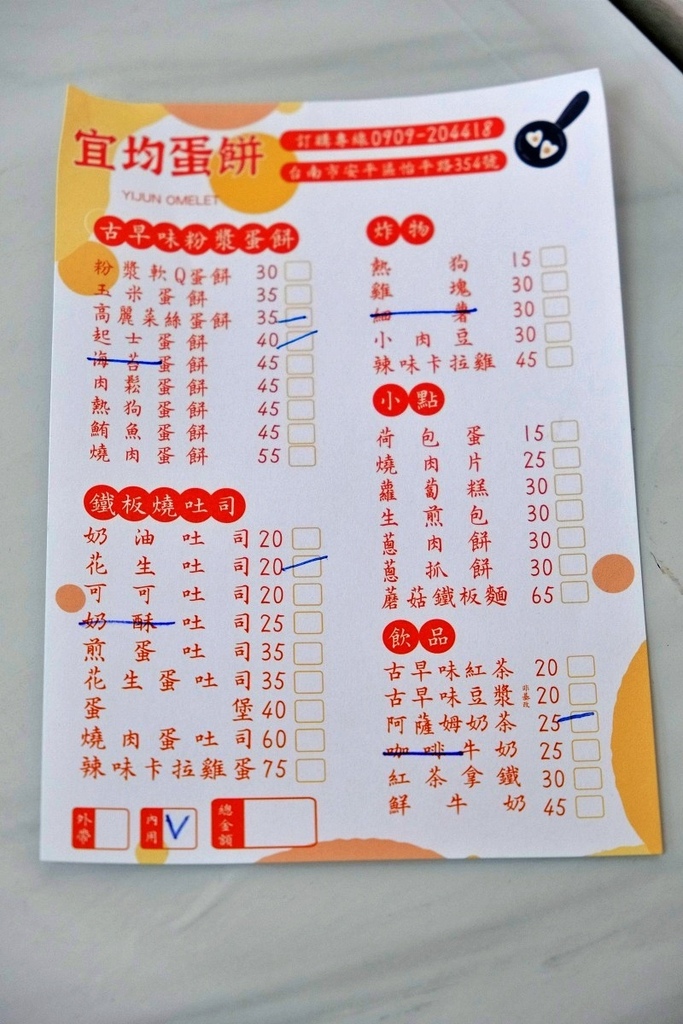 宜均蛋餅
YIJUN OMELET
訂購專線0909-204418
台南市安平區怡平路354號
古早味粉漿蛋餅
粉漿軟Q蛋餅 30
玉米蛋餅 35
高麗菜絲蛋餅 35
起士蛋餅 40
海苔蛋餅 45
肉鬆蛋餅 45
熱狗蛋餅 45
鮪魚蛋餅 45
燒肉蛋餅 55
鐵板燒吐司
奶油吐司 20
花生吐司 20
可可吐司 20
奶酥吐司 25
煎蛋吐司 35
花生蛋吐司 35
蛋堡 40
燒肉蛋吐司 60
辣味卡拉雞蛋 75
外帶
內用 V
總金額
炸物
熱狗 15
雞塊 30
細薯 30
小肉豆 30
辣味卡拉雞 45
小點
荷包蛋 15
燒肉片 25
蘿蔔糕 30
生煎包 30
蔥肉餅 30
蔥抓餅 30
蘑菇鐵板麵 65
飲品
古早味紅茶 20
古早味豆漿 非基改 20
阿薩姆奶茶 25
咖啡牛奶 25
紅茶拿鐵 30
鮮牛奶 45